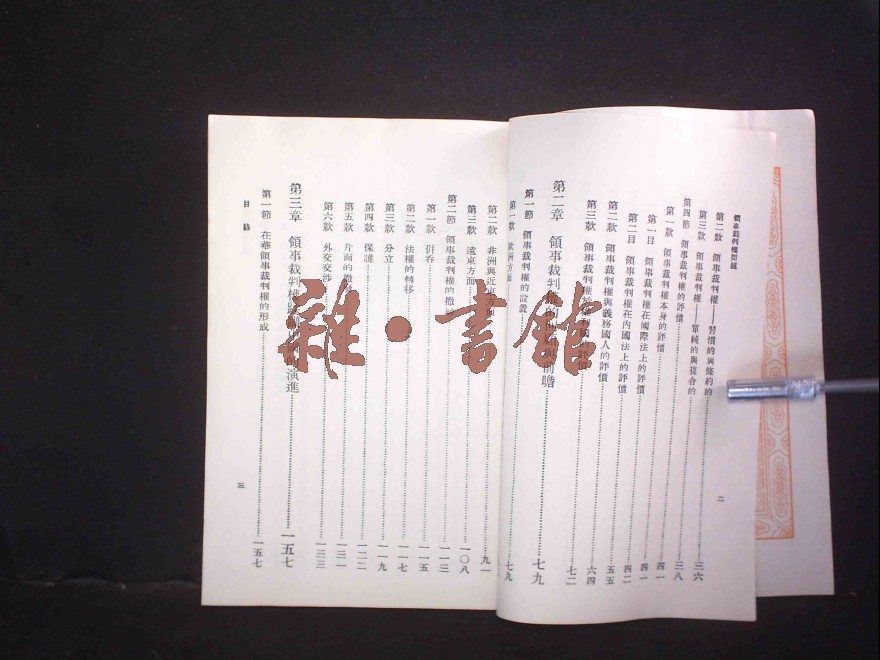 領事裁判權問題
第二款　領事裁判權——習慣的與條約的　三六
第三款　領事裁判權——單純的與複合的　三八
第四節　領事裁判權的評價　四一
第一款　領事裁判權本身的評價　四一
第一目　領事裁判權在國際法上的評價　四一
第二目　領事裁判權在內國法上的評價　四二
第二款　領事裁判權與義務國人的評價　五五
第三款　領事裁判權　的評價　六四
七二
第二章　領事裁判權的　前瞻　七九
第一節　領事裁判權的設置　七九
第一款　歐洲方面　七九
二
第二款　非洲與近東方面　九一
第三款　遠東方面　一〇八
第二節　領事裁判權的撤　一一三
第一款　併吞　一一五
第二款　法權的轉移　一一七
第三款　分立　一一九
第四款　保護　一二二
第五款　片面的撤　一三一
第六款　外交交涉　一三三
第三章　領事裁判權　的演進　一五七
第一節　在華領事裁判權的形成　一五七
目錄
三
雜·書館